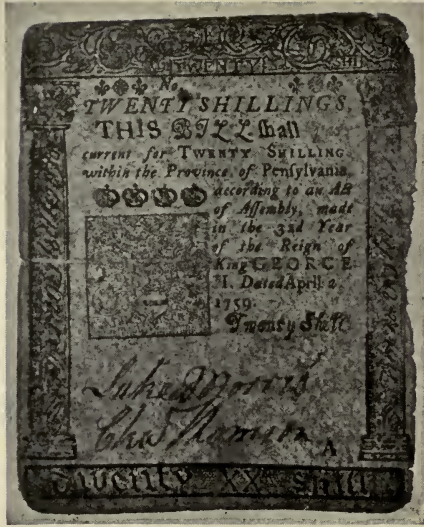 TWENTY SHI
No
TWENTY SHILLINGS.
THIS BILL ſhall
current for TWENTY SHILLING
within the Province of Penſylvania,
according to an Act
of Aſſembly, made
in the 33d Year
of the Reign of
King GEORGE
II. Dated April 2
1759.
Twenty Shill
Luke Morris
A
Twenty XX Shill